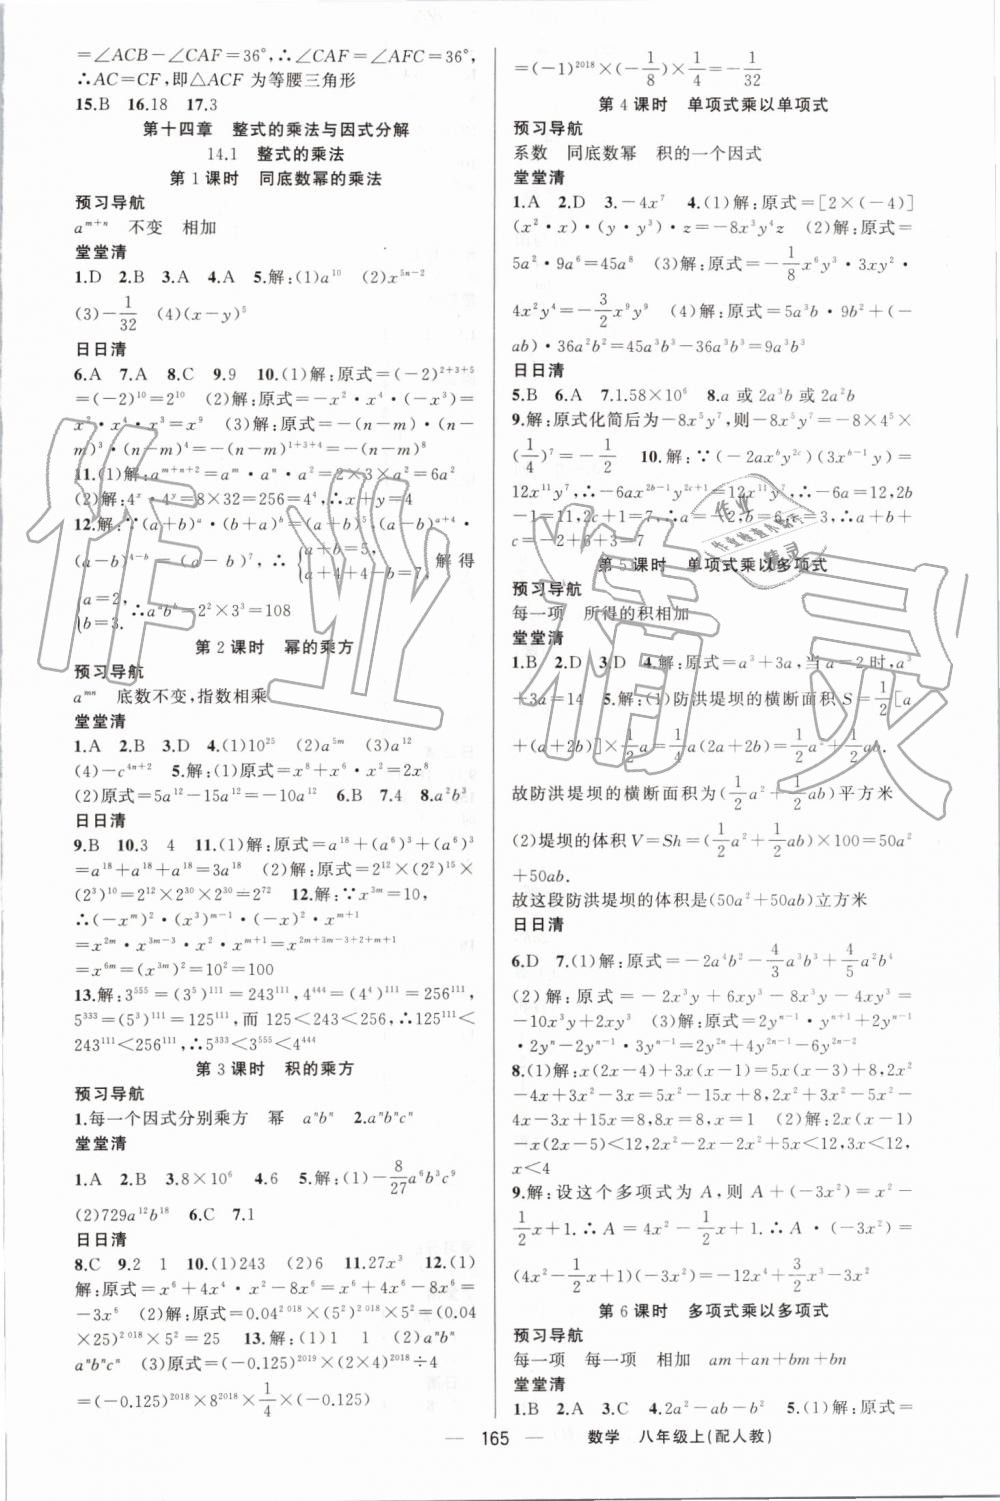 =∠ACB-∠CAF=36°,∴∠CAF=∠AFC=36°,
∴AC=CF,即△ACF 为等腰三角形
15.B 16.18 17.3
第十四章 整式的乘法与因式分解
14.1 整式的乘法
第1课时 同底数幂的乘法
预习导航
a^{m+n} 不变 相加
堂堂清
1.D 2.B 3.A 4.A 5.解:(1)a^{10} (2)x^{5n-2}
(3)-1/32 (4)(x-y)^5
日日清
6.A 7.A 8.C 9.9 10.(1)解:原式=(-2)^{2+3+5}
=(-2)^{10}=2^{10} (2)解:原式=-x^2·x^4·(-x^3)=
x^2·x^4·x^3=x^9 (3)解:原式=-(n-m)·(n-
m)^3·(n-m)^4=-(n-m)^{1+3+4}=-(n-m)^8
11.(1)解:a^{m+n+2}=a^m·a^n·a^2=2×3×a^2=6a^2
(2)解:4^x·4^y=8×32=256=4^4,∴x+y=4
12.解:∵(a+b)^a·(b+a)^b=(a+b)^5,(a-b)^{a+4}·
(a-b)^{4-b}=(a-b)^7,∴{a+b=5, a+4+4-b=7, 解得
{a=2, b=3. ∴a^a b^b=2^2×3^3=108
第2课时 幂的乘方
预习导航
a^{mn} 底数不变,指数相乘
堂堂清
1.A 2.B 3.D 4.(1)10^{25} (2)a^{5m} (3)a^{12}
(4)-c^{4n+2} 5.解:(1)原式=x^8+x^6·x^2=2x^8
(2)原式=5a^{12}-15a^{12}=-10a^{12} 6.B 7.4 8.a^2b^3
日日清
9.B 10.3 4 11.(1)解:原式=a^{18}+(a^6)^3+(a^6)^3
=a^{18}+a^{18}+a^{18}=3a^{18} (2)解:原式=2^{12}×(2^2)^{15}×
(2^3)^{10}=2^{12}×2^{30}×2^{30}=2^{72} 12.解:∵x^{3m}=10,
∴(-x^m)^2·(x^3)^{m-1}·(x^2)^2·x^{m+1}
=x^{2m}·x^{3m-3}·x^2·x^{m+1}=x^{2m+3m-3+2+m+1}
=x^{6m}=(x^{3m})^2=10^2=100
13.解:3^{555}=(3^5)^{111}=243^{111},4^{444}=(4^4)^{111}=256^{111},
5^{333}=(5^3)^{111}=125^{111},而 125<243<256,∴125^{111}<
243^{111}<256^{111},∴5^{333}<3^{555}<4^{444}
第3课时 积的乘方
预习导航
1.每一个因式分别乘方 幂 a^nb^n 2.a^nb^nc^n
堂堂清
1.A 2.B 3.8×10^6 4.6 5.解:(1)-8/27a^6b^3c^9
(2)729a^{12}b^{18} 6.C 7.1
日日清
8.C 9.2 1 10.(1)243 (2)6 11.27x^3 12.(1)
解:原式=x^6+4x^4·x^2-8x^6=x^6+4x^6-8x^6=
-3x^6 (2)解:原式=0.04^{2018}×(5^2)^{2018}×5^2=(0.04
×25)^{2018}×5^2=25 13.解:(1)1 1 (2)a^nb^n
a^nb^nc^n (3)原式=(-0.125)^{2019}×(2×4)^{2018}÷4
=(-0.125)^{2018}×8^{2018}×1/4×(-0.125)
=(-1)^{2018}×(-1/8)×1/4=-1/32
第4课时 单项式乘以单项式
预习导航
系数 同底数幂 积的一个因式
堂堂清
1.A 2.D 3.-4x^7 4.(1)解:原式=[2×(-4)]
(x^2·x)·(y·y^3)·z=-8x^3y^4z (2)解:原式=
5a^2·9a^6=45a^8 (3)解:原式=-1/8x^6y^3·3xy^2·
4x^2y^4=-3/2x^9y^9 (4)解:原式=5a^3b·9b^2+(-
ab)·36a^2b^2=45a^3b^3-36a^3b^3=9a^3b^3
日日清
5.B 6.A 7.1.58×10^6 8.a 或 2a^3b 或 2a^2b
9.解:原式化简后为-8x^5y^7,则-8x^5y^7=-8×4^5×
(1/4)^7=-1/2 10.解:∵(-2ax^by^{2c})(3x^{b-1}y)=
12x^{11}y^7,∴-6ax^{2b-1}y^{2c+1}=12x^{11}y^7,∴-6a=12,2b
-1=11,2c+1=7,∴a=-2,b=6,c=3,∴a+b+
c=-2+6+3=7
第5课时 单项式乘以多项式
预习导航
每一项 所得的积相加
堂堂清
1.B 2.D 3.D 4.解:原式=a^3+3a,当 a=2时,a^3
+3a=14 5.解:(1)防洪堤坝的横断面积 S=1/2[a
+(a+2b)]×1/2a=1/4a(2a+2b)=1/2a^2+1/2ab.
故防洪堤坝的横断面积为(1/2a^2+1/2ab)平方米
(2)堤坝的体积 V=Sh=(1/2a^2+1/2ab)×100=50a^2
+50ab.
故这段防洪堤坝的体积是(50a^2+50ab)立方米
日日清
6.D 7.(1)解:原式=-2a^4b^2-4/3a^3b^3+4/5a^2b^4
(2)解:原式=-2x^3y+6xy-8x^3y-4xy=
-10x^3y+2xy (3)解:原式=2y^{n-1}·y^{n+1}+2y^{n-1}
·2y^n-2y^{n-1}·3y^n=2y^{2n}+4y^{2n-1}-6y^{2n-1}
8.(1)解:x(2x-4)+3x(x-1)=5x(x-3)+8,2x^2
-4x+3x^2-3x=5x^2-15x+8,2x^2+3x^2-5x^2-
4x-3x+15x=8,8x=8,x=1 (2)解:2x(x-1)
-x(2x-5)<12,2x^2-2x-2x^2+5x<12,3x<12,
x<4
9.解:设这个多项式为 A,则 A+(-3x^2)=x^2-
1/2x+1.∴A=4x^2-1/2x+1.∴A·(-3x^2)=
(4x^2-1/2x+1)(-3x^2)=-12x^4+3/2x^3-3x^2
第6课时 多项式乘以多项式
预习导航
每一项 每一项 相加 am+an+bm+bn
堂堂清
1.B 2.A 3.C 4.2a^2-ab-b^2 5.(1)解:原式=
— 165 — 数学 八年级上(配人教)
作业精灵